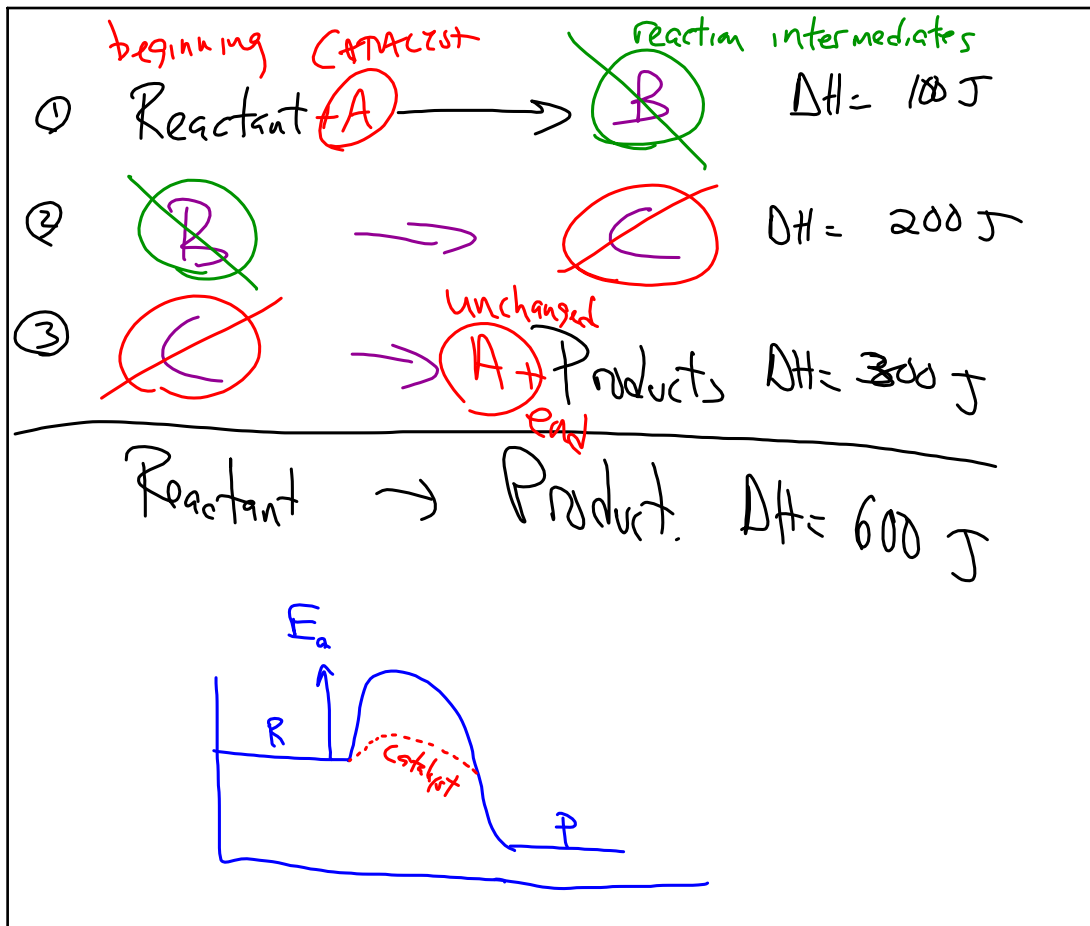 beginning CATALYST reaction intermediates
① Reactant + A → B ΔH = 100 J
② B → C ΔH = 200 J
unchanged
③ C → A + Products ΔH = 300 J
end
Reactant → Product. ΔH = 600 J
Ea
R
Catalyst
P